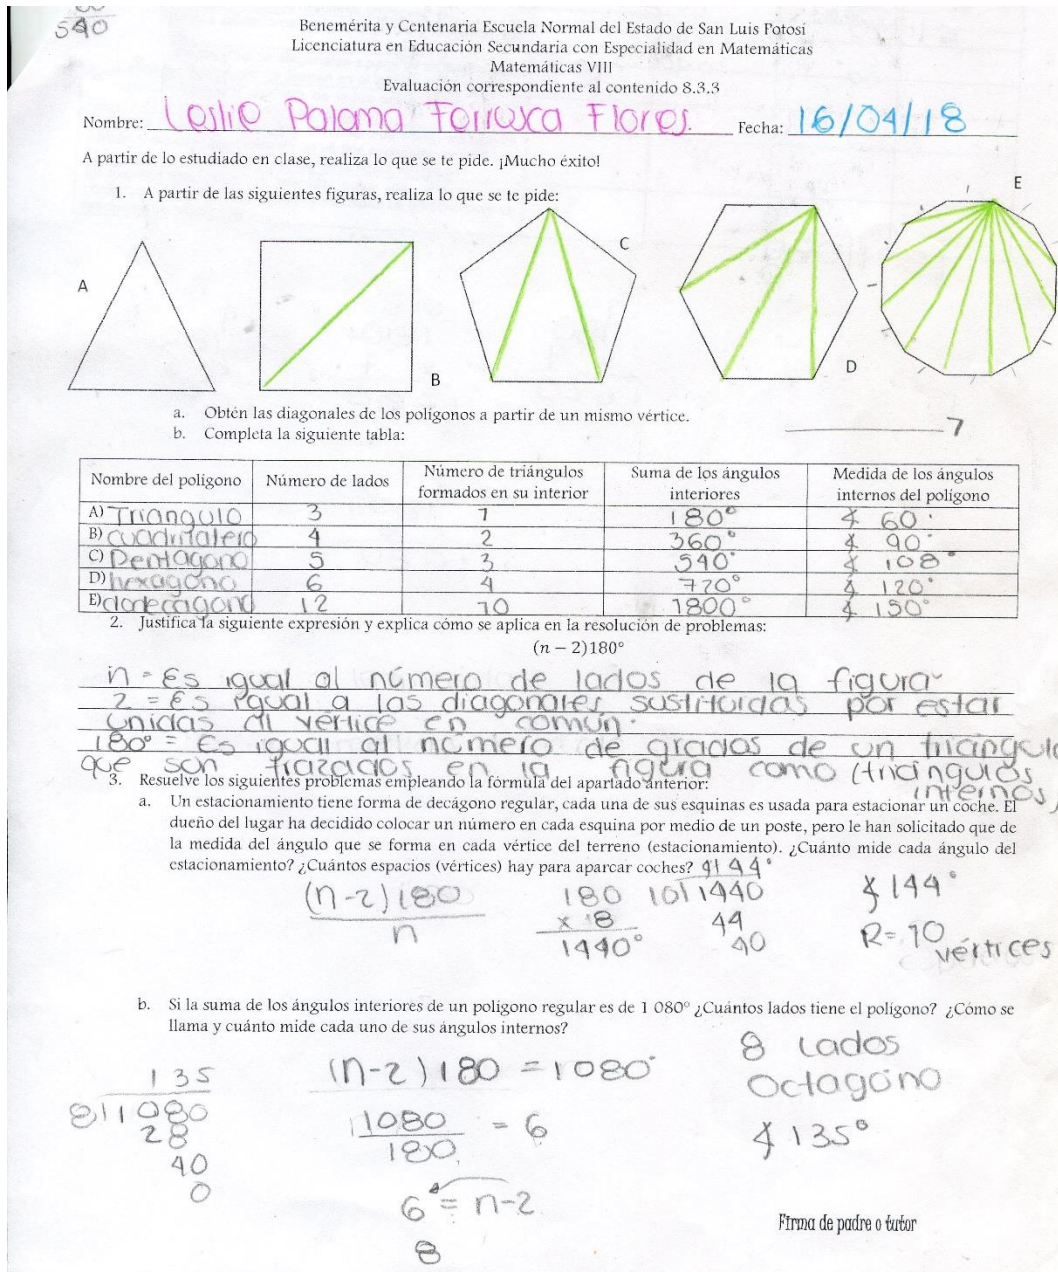 540
Benemérita y Centenaria Escuela Normal del Estado de San Luis Potosí
Licenciatura en Educación Secundaria con Especialidad en Matemáticas
Matemáticas VIII
Evaluación correspondiente al contenido 8.3.3
Nombre: Leslie Paloma Ferrusca Flores. Fecha: 16/04/18
A partir de lo estudiado en clase, realiza lo que se te pide. ¡Mucho éxito!
1. A partir de las siguientes figuras, realiza lo que se te pide:
A
B
C
D
E
a. Obtén las diagonales de los polígonos a partir de un mismo vértice.
b. Completa la siguiente tabla:
7
Nombre del polígono Número de lados Número de triángulos formados en su interior Suma de los ángulos interiores Medida de los ángulos internos del polígono
A) Triangulo 3 1 180° ∡ 60°
B) cuadrilatero 4 2 360° ∡ 90°
C) Pentagono 5 3 540° ∡ 108°
D) hexagono 6 4 720° ∡ 120°
E) dodecagono 12 10 1800° ∡ 150°
2. Justifica la siguiente expresión y explica cómo se aplica en la resolución de problemas:
(n − 2)180°
n = Es igual al número de lados de la figura
2 = Es igual a las diagonales sustituidas por estar
unidas al vertice en común.
180° = Es igual al número de grados de un triangulo
que son trazados en la figura como (triangulos
internos)
3. Resuelve los siguientes problemas empleando la fórmula del apartado anterior:
a. Un estacionamiento tiene forma de decágono regular, cada una de sus esquinas es usada para estacionar un coche. El
dueño del lugar ha decidido colocar un número en cada esquina por medio de un poste, pero le han solicitado que de
la medida del ángulo que se forma en cada vértice del terreno (estacionamiento). ¿Cuánto mide cada ángulo del
estacionamiento? ¿Cuántos espacios (vértices) hay para aparcar coches?
(n-2)180
n
180
x 8
1440°
144°
10 1440
44
40
∡ 144°
R= 10 vértices
b. Si la suma de los ángulos interiores de un polígono regular es de 1 080° ¿Cuántos lados tiene el polígono? ¿Cómo se
llama y cuánto mide cada uno de sus ángulos internos?
135
8 1080
28
40
0
(n-2)180 = 1080°
1080
180
= 6
6 = n-2
8
8 lados
Octagono
∡ 135°
Firma de padre o tutor